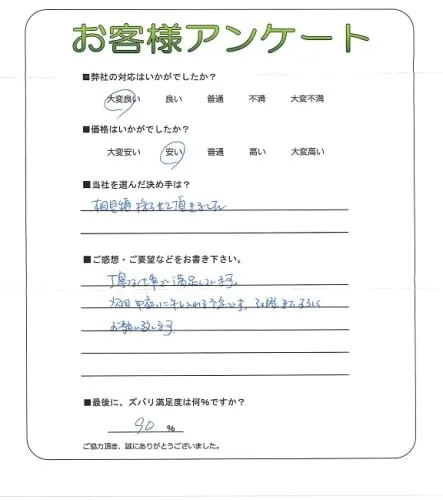 お客様アンケート
■弊社の対応はいかがでしたか？
大変良い 良い 普通 不満 大変不満
■価格はいかがでしたか？
大変安い 安い 普通 高い 大変高い
■当社を選んだ決め手は？
相見積 させて頂きました
■ご感想・ご要望などをお書き下さい。
丁寧な仕事で満足しています。
次回 に 入れる予定です。 またよろしく
お願い致します
■最後に、ズバリ満足度は何%ですか？
90 %
ご協力頂き、誠にありがとうございました。